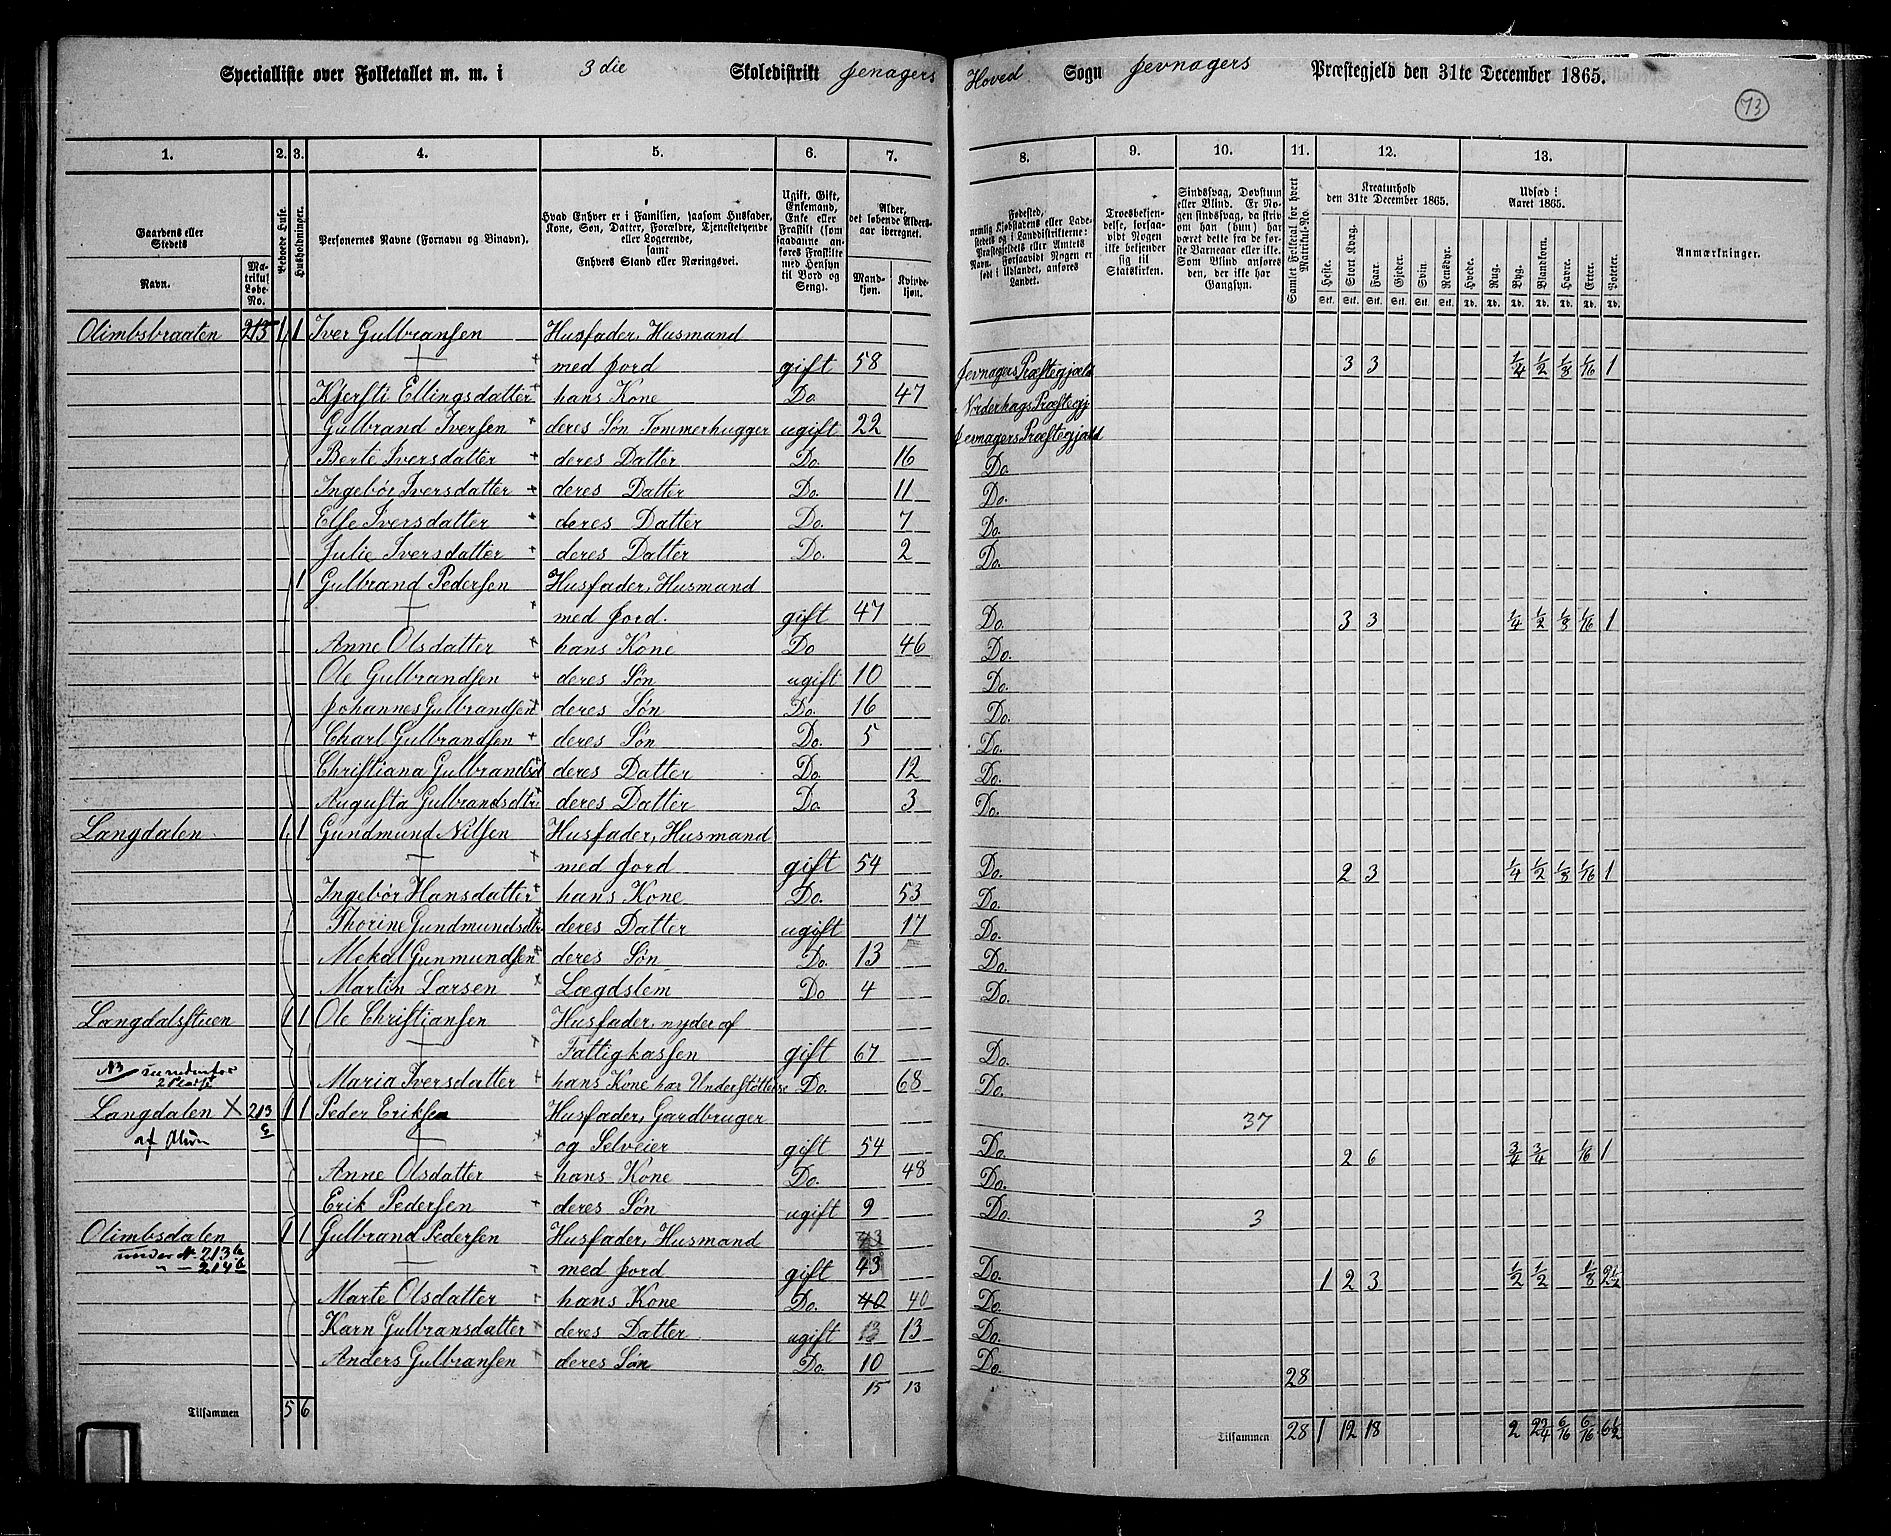 Specialliste over Folketallet m. m. i 3 die Skoledistrikt Jevnagers Hoved Sogn Jevnagers Præstegjeld den 31te December 1865.
73
1. 2. 3. 4. 5. 6. 7. 8. 9. 10. 11. 12. 13.
Gaardens eller Stedets
Navn.
Matrikul Løbe-No.
Beboede Huse.
Husholdninger.
Personernes Navne (Fornavn og Binavn).
Hvad Enhver er i Familien, saasom Husfader, Kone, Søn, Datter, Forældre, Tjenestetyende eller Logerende, samt Enhvers Stand eller Næringsvei.
Ugift, Gift, Enkemand, Enke eller Fraskilt (som saadanne anføres Fraskilte med Hensyn til Bord og Seng).
Alder, det løbende Alders-aar iberegnet.
Mandkjøn.
Kvindekjøn.
Fødested, nemlig Kjøbstadens eller Ladestedets og i Landdistrikterne: Præstegjeldets eller Amtets Navn. Forsaavidt Nogen er født i Udlandet, anføres Landet.
Troesbekjendelse, forsaavidt Nogen ikke bekjender sig til Statskirken.
Sindssvag, Døvstum eller Blind. Er Nogen sindssvag, da skriv om han (hun) har været dette fra de første Barneaar eller ikke. Som Blind anføres den, der ikke har Gangsyn.
Samlet Folketal for hvert Matrikul-No.
Kreaturhold den 31te December 1865.
Heste. Stort Kvæg. Faar. Gjeder. Svin. Rensdyr.
Stk. Stk. Stk. Stk. Stk. Stk.
Udsæd i Aaret 1865.
Hvede. Rug. Byg. Blandkorn. Havre. Erter. Poteter.
Td. Td. Td. Td. Td. Td. Td.
Anmærkninger.
Olimbsbraaten 213 1 1 Iver Gulbransen Husfader, Husmand
med Jord gift 58 Jevnagers Præstegjæld 3 3 1/4 1/2 1/8 1/16 1
Kjersti Ellingsdatter hans Kone Do 47 Norderhogs Præstegj
Gulbrand Iversen deres Søn Tømmerhugger ugift 22 Jevnagers Præstegjæld
Berte Iversdatter deres Datter Do. 16 Do.
Ingebør Iversdatter deres Datter Do. 11 Do.
Else Iversdatter deres Datter Do. 7 Do.
Julie Iversdatter deres Datter Do. 2 Do.
1 Gulbrand Pedersen Husfader, Husmand
med Jord. gift 47 Do. 3 3 1/4 1/2 1/8 1/16 1
Anne Olsdatter hans Kone Do 46 Do.
Ole Gulbrandsen deres Søn ugift 10 Do.
Johannes Gulbrandsen deres Søn Do. 16 Do.
Charl Gulbrandsen deres Søn Do. 5 Do.
Christiana Gulbrandsd deres Datter Do. 12 Do.
Augusta Gulbrandsdtr deres Datter Do 3 Do.
Langdalen 1 1 Gundmund Nilsen Husfader, Husmand
med Jord gift 54 Do. 2 3 1/4 1/2 1/8 1/16 1
Ingebør Hansdatter hans Kone Do. 53 Do.
Thorine Gundmundsdtr deres Datter ugift 17 Do.
Mekal Gunmundsen deres Søn Do. 13 Do.
Martin Larsen Lægdslem Do 4 Do.
Langdalsstuen 1 1 Ole Christiansen Husfader, nyder af
Fattigkassen gift 67 Do.
NB
Maria Iversdatter hans Kone har Understøttelse Do. 68 Do.
Langdalen X 213 c 1 1 Peder Eriksen Husfader, Gardbruger 37
og Selveier gift 54 Do. 2 6 3/4 3/4 1/16 1
Anne Olsdatter hans Kone Do. 48 Do.
Erik Pedersen deres Søn ugift 9 Do. 3
Olimbsdalen 1 1 Gulbrand Pedersen Husfader, Husmand
under No 213 b
" — 214 b
med Jord gift 43 Do. 1 2 3 1/2 1/2 1/8 2 1/2
Marte Olsdatter hans Kone Do. 40 40 Do.
Karn Gulbransdatter deres Datter ugift 13 13 Do.
Anders Gulbransen deres Søn Do. 10 Do.
28
15 13
Tilsammen 5 6
Tilsammen 28 1 12 18 2 2 2/4 6/16 6/16 6 1/2